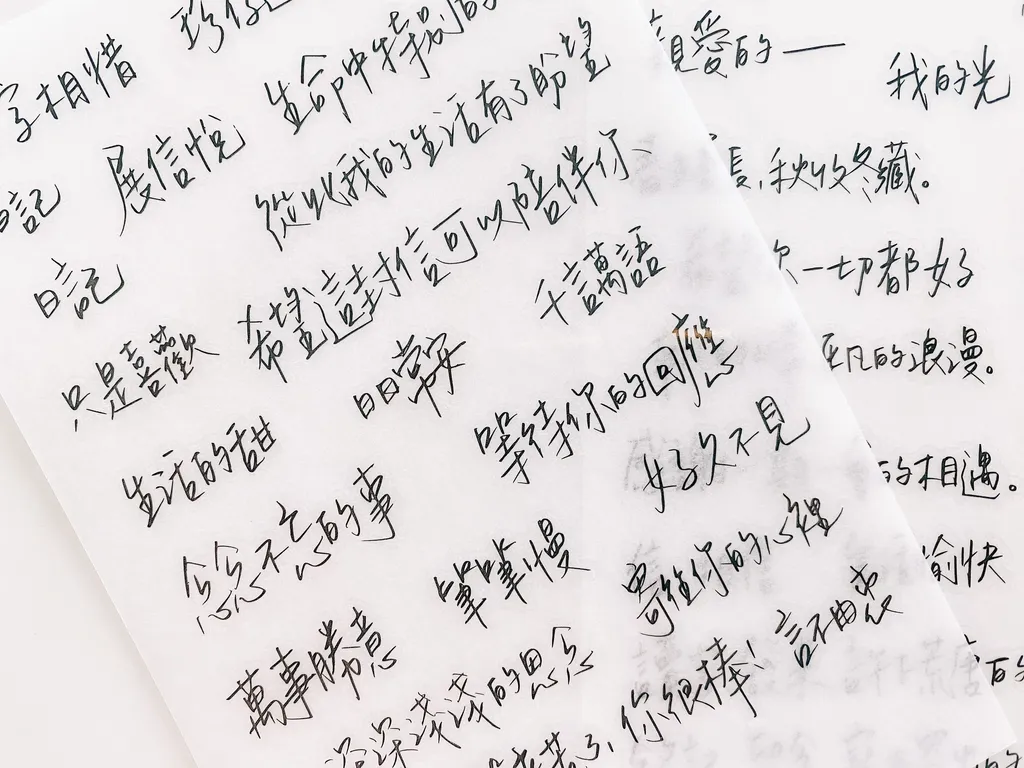 字相惜
珍存
日記
展信悅
生命中特別的
從此我的生活有了盼望
日記
希望這封信可以陪伴你
只是喜歡
日日常安
千言萬語
生活的甜
等待你的回應
念念不忘的事
好久不見
筆筆慢
寄給你的心裡
萬事勝意
深深淺淺的思念
你很棒!
言不由衷
親愛的——
我的光
秋收冬藏。
一切都好
平凡的浪漫。
的相遇。
愉快
的